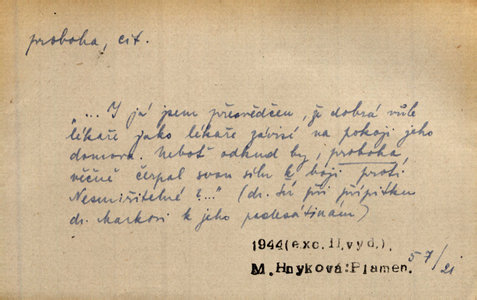 proboha, cit.
"... I já jsem přesvědčen, že dobrá vůle
lékaře jako lékaře závisí na pokoji jeho
domova. Neboť odkud by, proboha,
věčně čerpal svou sílu k boji proti
Nesmiřitelné?..." (dr. Šír při přípitku
dr. Markovi k jeho padesátinám)
1944(exc.II.vyd.).
M.Hnyková:Plamen. 57/21